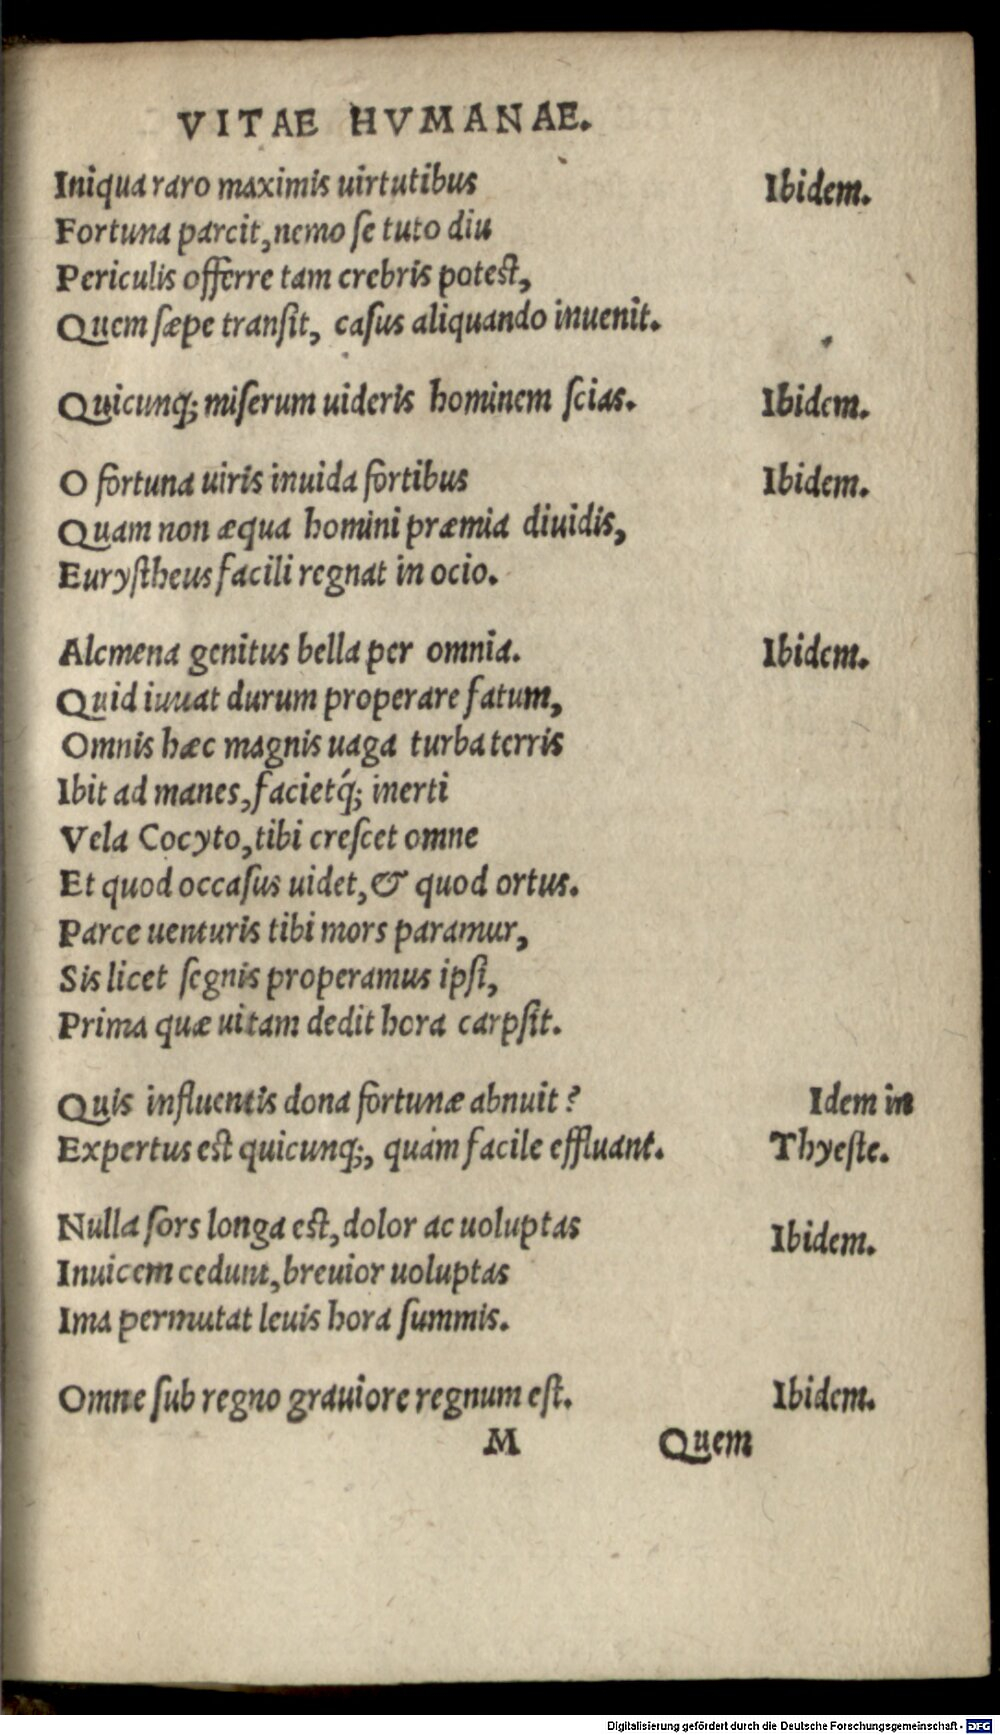 VITAE HVMANAE.
Iniqua raro maximis uirtutibus Ibidem.
Fortuna parcit, nemo se tuto diu
Periculis offerre tam crebris potest,
Quem sæpe transit, casus aliquando inuenit.
Quicunq; miserum uideris hominem scias. Ibidem.
O fortuna uiris inuida fortibus Ibidem.
Quam non æqua homini præmia diuidis,
Eurystheus facili regnat in ocio.
Alcmena genitus bella per omnia. Ibidem.
Quid iuuat durum properare fatum,
Omnis hæc magnis uaga turba terris
Ibit ad manes, facietq́; inerti
Vela Cocyto, tibi crescet omne
Et quod occasus uidet, & quod ortus.
Parce uenturis tibi mors paramur,
Sis licet segnis properamus ipsi,
Prima quæ uitam dedit hora carpsit.
Quis influentis dona fortunæ abnuit? Idem in
Expertus est quicunq;, quàm facile effluant. Thyeste.
Nulla sors longa est, dolor ac uoluptas Ibidem.
Inuicem cedunt, breuior uoluptas
Ima permutat leuis hora summis.
Omne sub regno grauiore regnum est. Ibidem.
M Quem
Digitalisierung gefördert durch die Deutsche Forschungsgemeinschaft - DFG